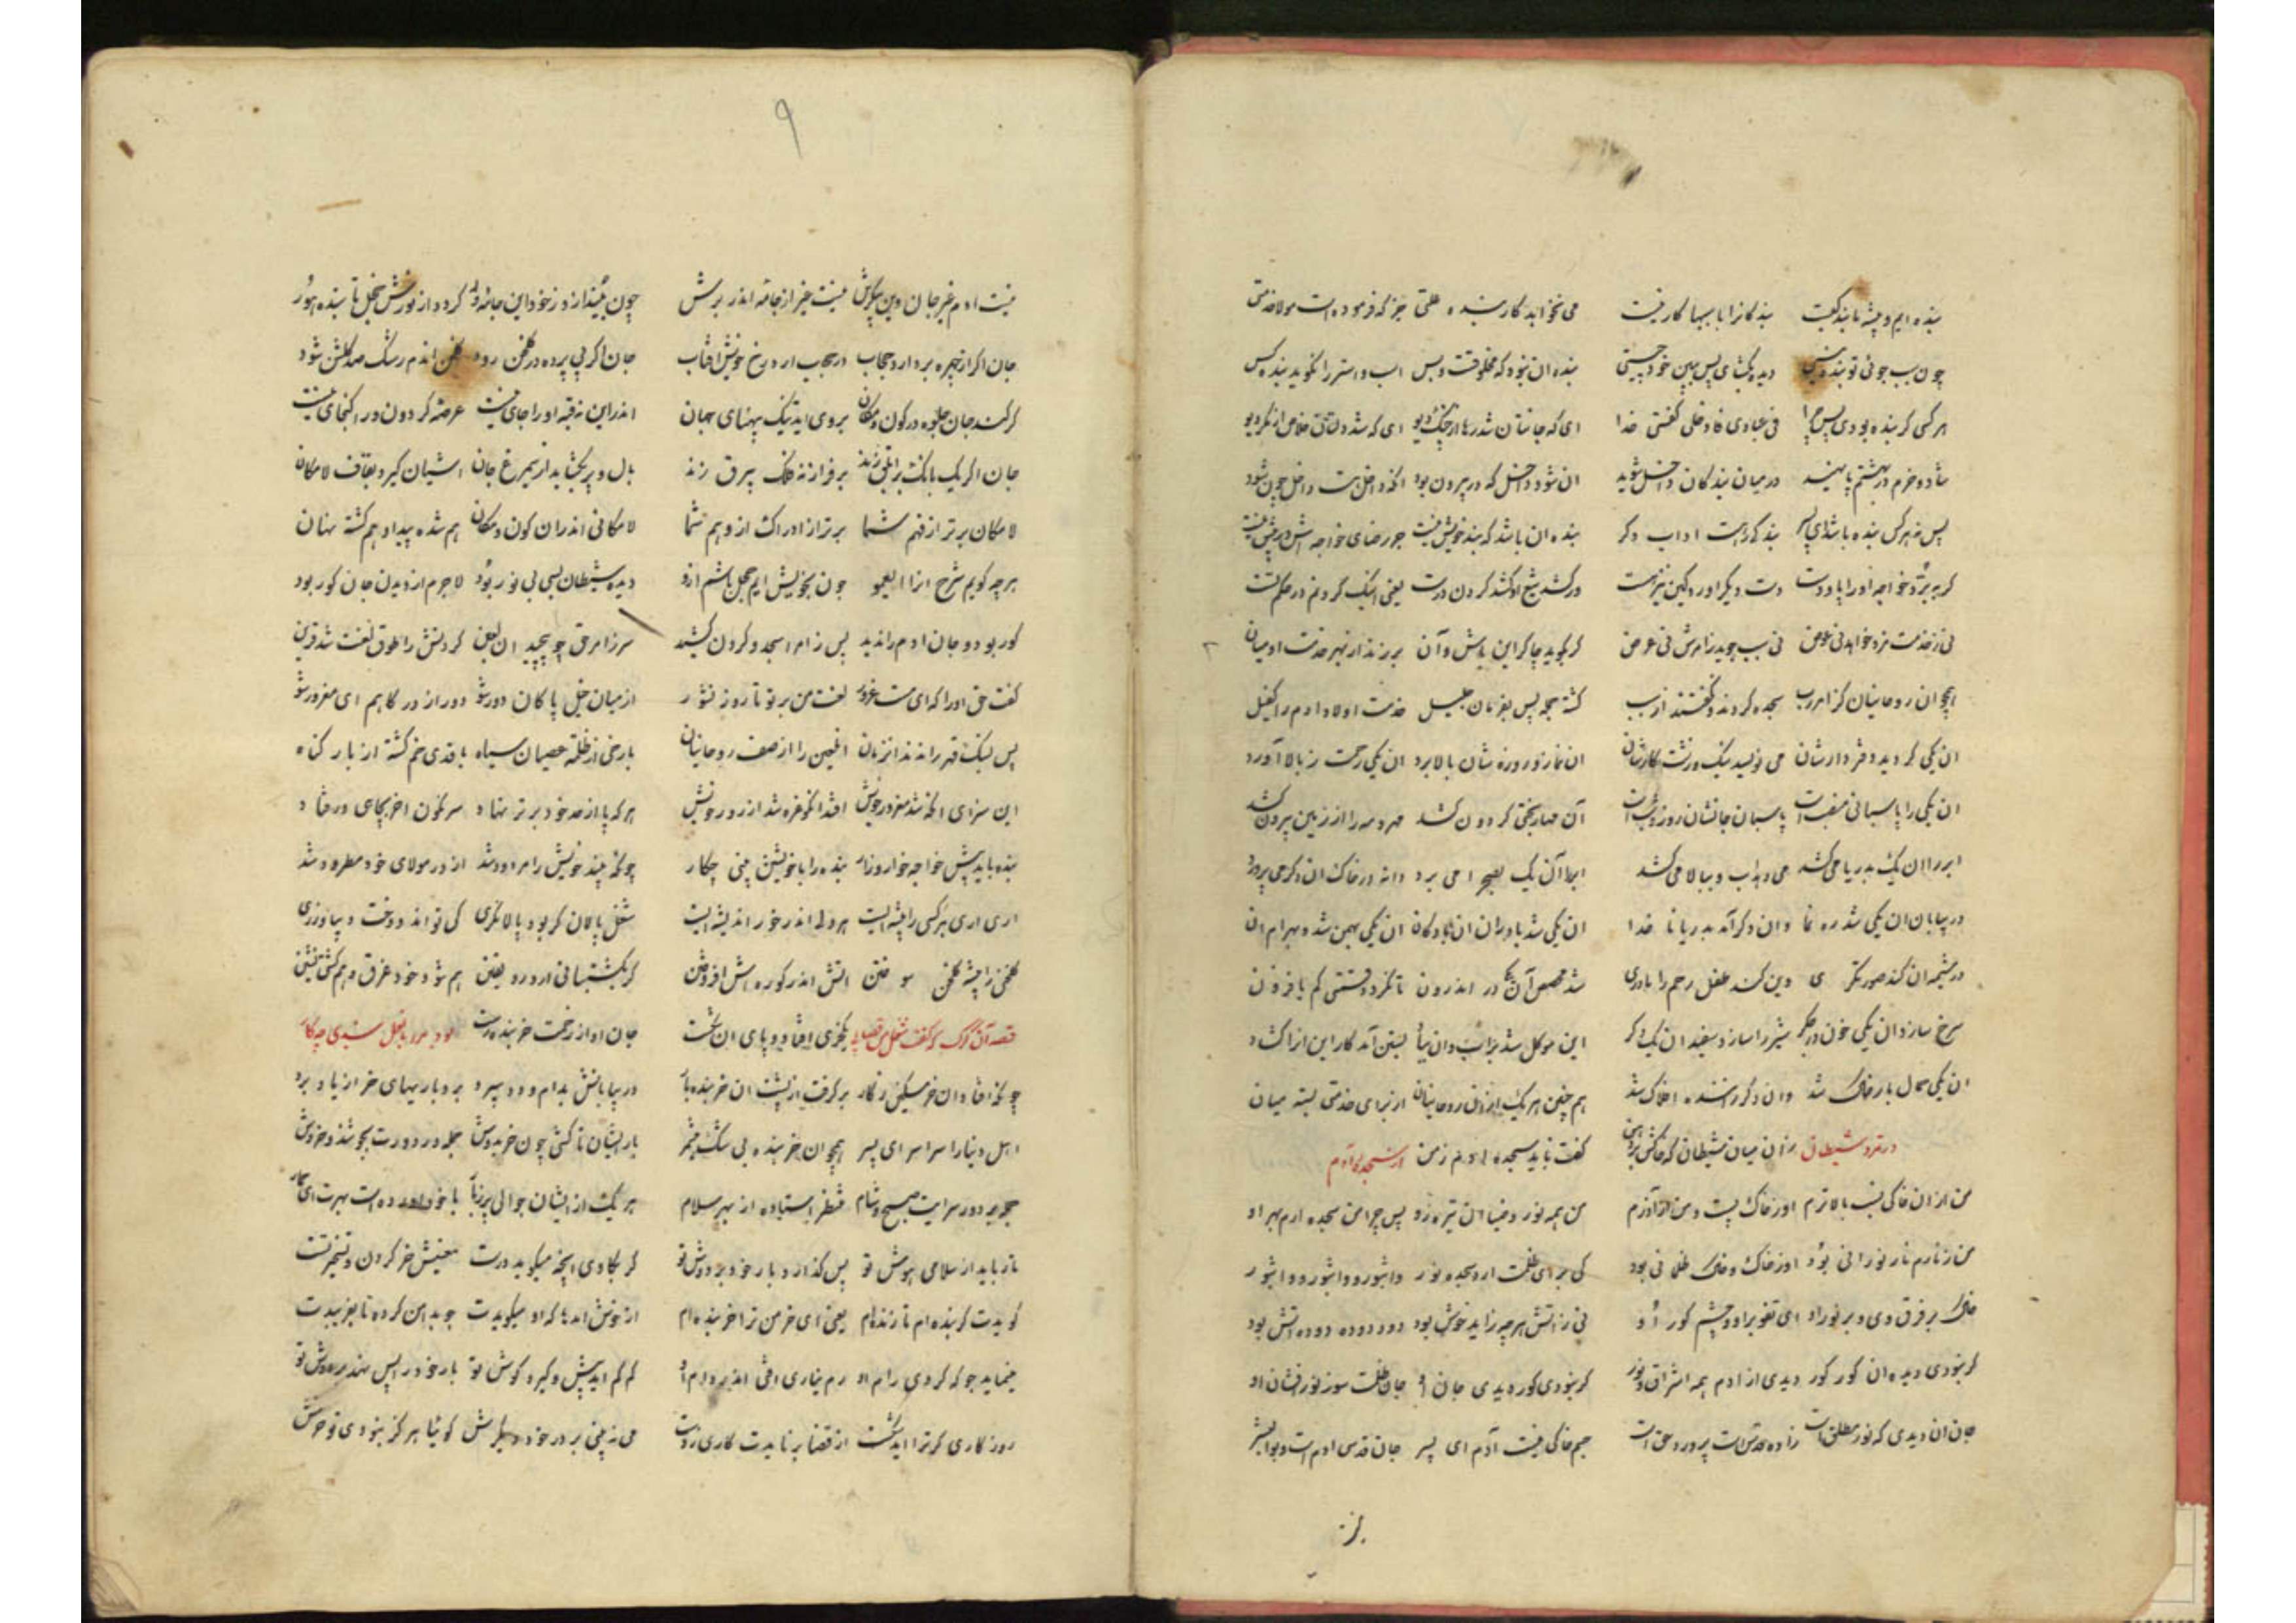 بنده ایم و پیشه ما بندگیست بندگانرا با سببها کار نیست می نخواهد کار بنده علتی جز که فرموده است مولا خدمتی
چون سبب جوئی تو بنده نیستی دیده بگشای پس ببین خود چیستی بنده ان نبود که مخلوقست و بس اسب و استر را نگوید بنده کس
هر کسی گر بنده بودی پس چرا فی عبادی فادخلی گفتی خدا ای که جانتان شد رها از چنگ دیو ای که شد دلتان خلاص از مکر و ریو
شاد و خرم در بهشتم پا نهید در میان بندگان داخل شوید ان شود داخل که در بیرون بود انکه داخل هست داخل چون شود
پس نه هر کس بنده باشد ای پسر بندگی راهست اداب دگر بنده ان باشد که بند خویش نیست جز رضای خواجه اش در پیش نیست
گر ببرد خواجه او را پا و دست دست دیگر اورد کین نیز هست ور کشد تیغ او کشد گردن درست یعنی اینک گردنم در حکم تست
نی ز خدمت مزد خواهد نی عوض نی سبب جوید ز امرش نی غرض گر بگوید چاکر این باش و آن بر زند از بهر خدمت او میان
همچو ان روحانیان کز امر رب سجده کردند و نگفتند از سبب گشته جمله پس بفرمان جلیل خدمت اولاد ادم را کفیل
ان یکی گردیده دفتردارشان می نویسد نیک و زشت کارشان ان نماز و روزه شان بالا برد ان یکی رحمت ز بالا آورد
ان یکی را پاسبانی منصب است پاسبان جانشان روز و شب است آن مهار بختی گردون کشد مهر و مه را از زمین بیرون کشد
ابر را ان یک بدریا می کشد می دهد اب و ببالا می کشد ابر را آن یک بصحرا می برد دانه در خاک ان دگر می پرورد
در بیابان ان یکی شد ره نما وان دگر آمد بدریا نا خدا ان یکی شد یاوران ان ان یکی بهمن شد و بهرام ان
در مشیمه ان کند صورتگری وین کند طفل رحم را یاوری شد محصص آن یکی در اندرون تا نگردد قسمتی کم یا فزون
سرخ سازد ان یکی خون در جگر شیر را سازد سفید ان یک دگر این موکل شد بر آب و ان بنا بستن آمد کار این انرا گشاد
ان یکی حمال بار خاک شد وان دگر افلاک شد هم چنین هر یک از ان روحانیان از برای خدمتی بسته میان
در تمرد شیطان از سجده بآدم زان میان شیطان که خاکش بر دهن گفت ناید سجده ادم ز من
من از ان خاکی نسب بالاترم او ز خاک پست و من از آذرم من همه نور و ضیا ان تیره رو پس چرا من سجده ارم بهر او
من ز نارم نار نورانی بود او ز خاک و خاک ظلمانی بود کی برای ظلمت ارد سجده نور واثبورو واثبورو واثبور
خاک بر فرق وی و بر نور او ای تفو بر او و چشم کور او نی ز آتش هر چه زاید خوش بود دود دوده دوده اتش بود
گر نبودی دیده ان کور کور دیدی از ادم همه اشراق و نور گر نبودی کور دیدی جان او جان ظلمت سوز نور افشان او
جان ان دیدی که نور مطلق است زاده قدس است پرورد حق است جسم خاکی نیست آدم ای پسر جان قدسی ادم است و بوالبشر
نیست ادم غیر جان وین پیکرش نیست جز از جامه اندر برش چون بیندازد ز خود این جامه دور گردد از نورش خجل تابنده هور
جان اگر از چهره بردارد حجاب در حجاب ارد رخ خویش افتاب جان اگر بی پرده در گلخن رود گلخن اندم رشک صد گلشن شود
گر کند جان جلوه در کون و مکان بروی اید تنگ پهنای جهان اندر این نه قبه او را جای نیست عرصه گردون ورا گنجای نیست
جان اگر یک بانگ بر ابلق زند بر فراز نه فلک بیرق زند بال و پر بگشاید ار سیمرغ جان اشیان گیرد بقاف لامکان
لامکان برتر از فهم شما برتر از ادراک از وهم شما لامکانی اندران کون و مکان هم شده پیدا و هم گشته نهان
هرچه گویم شرح انرا ای عمو چون بخویش ایم خجل باشم ازو دیده شیطان بسی بی نور بود لاجرم از دیدن جان کور بود
کور بود و جان ادم را ندید پس ز امر اسجد و گردن کشید سر ز امر حق چو پیچید ان لعین گردنش را طوق لعنت شد قرین
گفت حق او را که ای مست غرور لعنت من بر تو تا روز نشور از میان خیل پاکان دور شو دور از درگاهم ای مغرور شو
پس لیک قهر راندند انزمان اللعین را از صف روحانیان با رخی از ظلمت عصیان سیاه با قدی خم گشته از بار گناه
این سزای انکه شد مغرور خویش افتد انکو غره شد از زور خویش هر که پا از حد خود برتر نهاد سرنگون اخر بچاهی درفتاد
بنده باید پیش خواجه خوار و زار بنده را با خویشتن بینی چکار چونکه چند خویش را مردود شد از در مولای خود مطرود شد
اری اری هر کسی را پیشه ایست هر دلی اندر خور اندیشه ایست شغل پالان گر بود پالانگری کی تواند دوخت دیبا درزی
گلخنی را پیشه گلخن سوختن اتش اندر کوره اش افروختن گر بکشتیبانی ارد رو یقین هم شود خود غرق و هم کشتی نشین
قصه آن گرگ که گفت شغل من قصابی یکخری افتاد و پای ان شکست جان او از زحمت خربنده رست
چونکه افتاد ان خر مسکین ز کار برگرفت از پشت ان خربنده بار در بیابانش بدام و دد سپرد برد و بارهای خر از یاد برد
اهل دنیا را سراسر ای پسر همچو ان خربنده بی شک شمر بارایشان تا کشی چون خر بدوش جمله در دورت بجوشند و خروش
جمله بر دور سرایت صبح و شام منتظر استاده از بهر سلام هر یک از ایشان جوالی پر ز بار با خود است بهرت ای حمار
تاز باید از سلامی هوش تو پس گذارد بار خود بر دوش تو گر بکاوی انچه میگوید درست معنیش خر کردن و تسخر تست
گویدت که بنده ام تا زنده ام یعنی ای خر من ترا خربنده ام از خوشش اید هر که او میگویدت
کم کم اید پیش و گیرد گوش تو بار خود را پس نهد بر دوش تو
روزگاری گر ترا اید شکست از قضا بر نایدت کاری ز دست می نه بینی بر در خود دیگرش گوئیا هرگز نبودی تو خرش